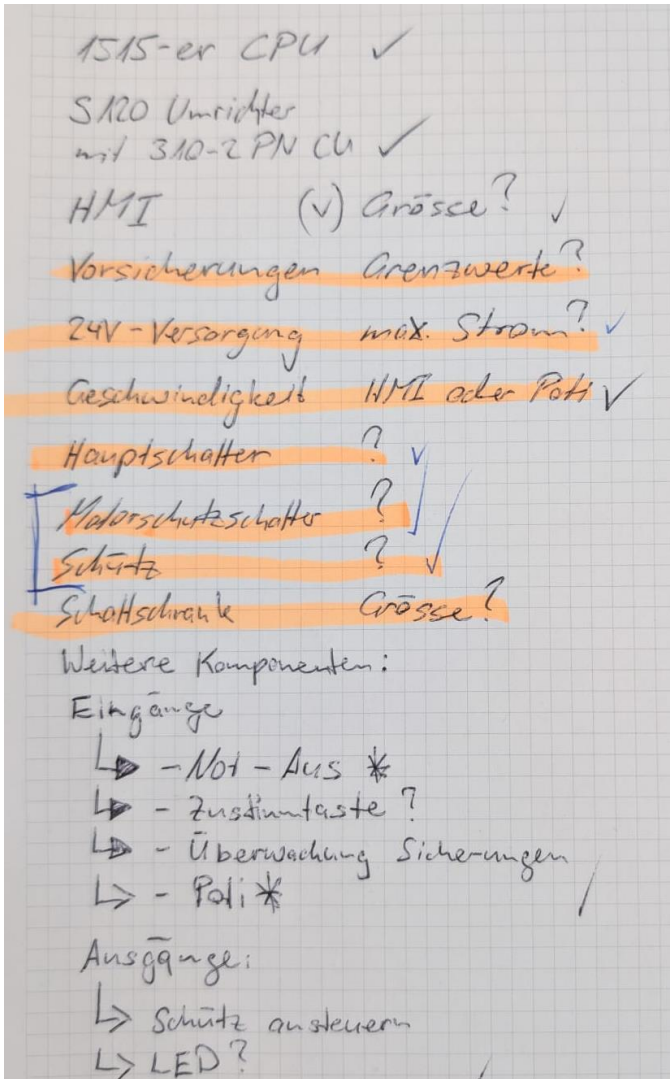 1515-er CPU ✓
S120 Umrichter
mit 310-2 PN CU ✓
HMI (✓) Grösse? ✓
Vorsicherungen Grenzwerte?
24V-Versorgung max. Strom? ✓
Geschwindigkeit HMI oder Poti ✓
Hauptschalter ? ✓
Motorschutzschalter ? ✓
Schütz ? ✓
Schaltschrank Grösse?
Weitere Komponenten:
Eingänge
↳ - Not-Aus *
↳ - Zustimmtaste?
↳ - Überwachung Sicherungen
↳ - Poti *
Ausgänge:
↳ Schütz ansteuern
↳ LED?